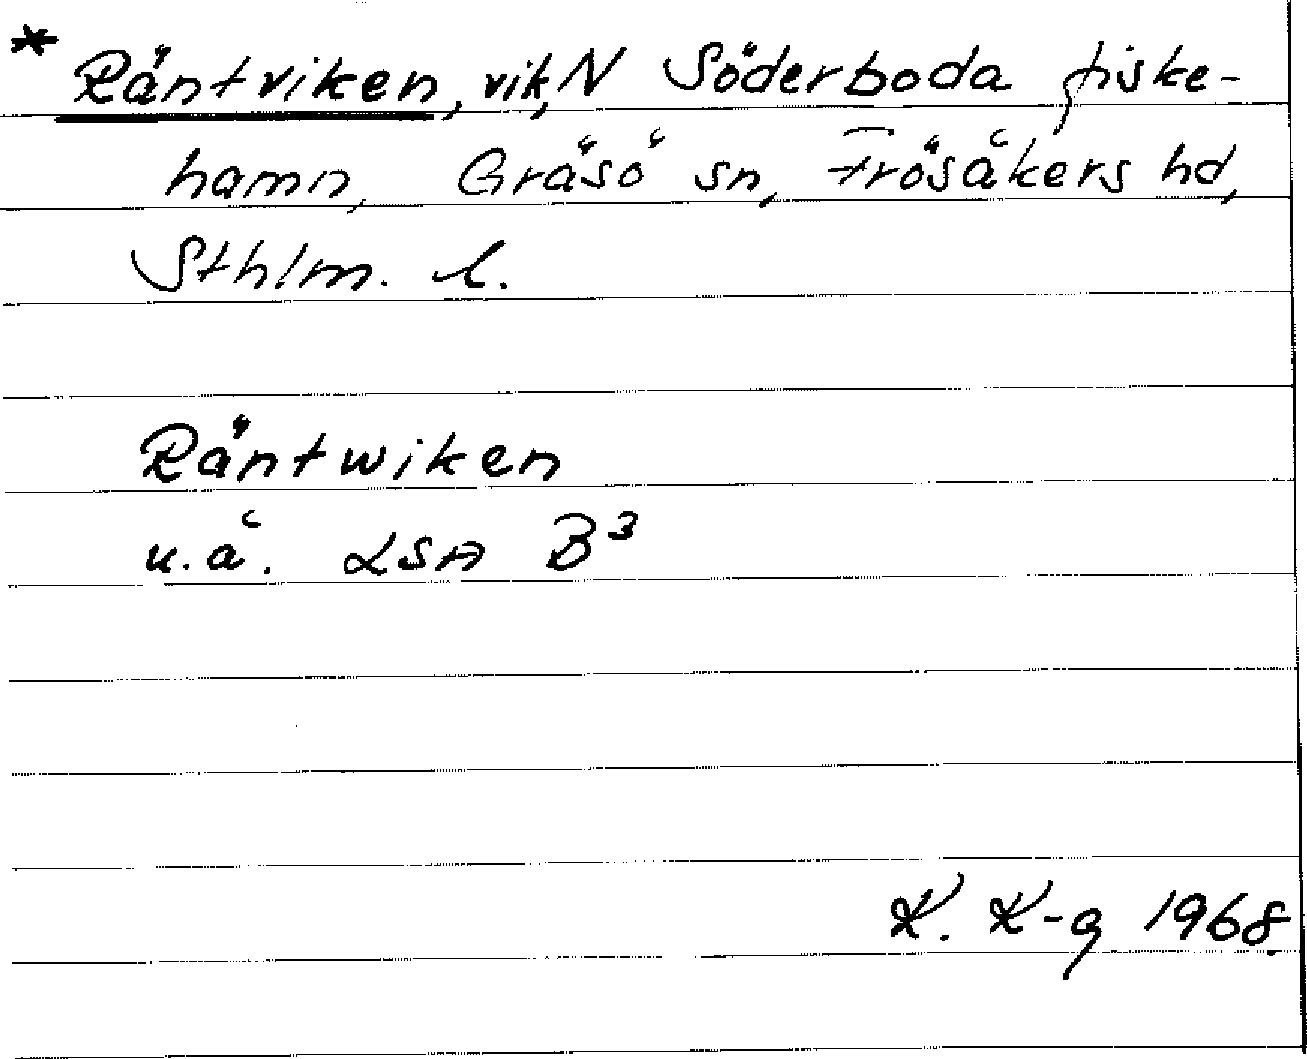 * Räntviken, vik, N Söderboda fiske-
hamn, Gräsö sn, Frösåkers hd,
Sthlm. l.
Räntwiken
u.å. LSA B³
K. K-g 1968